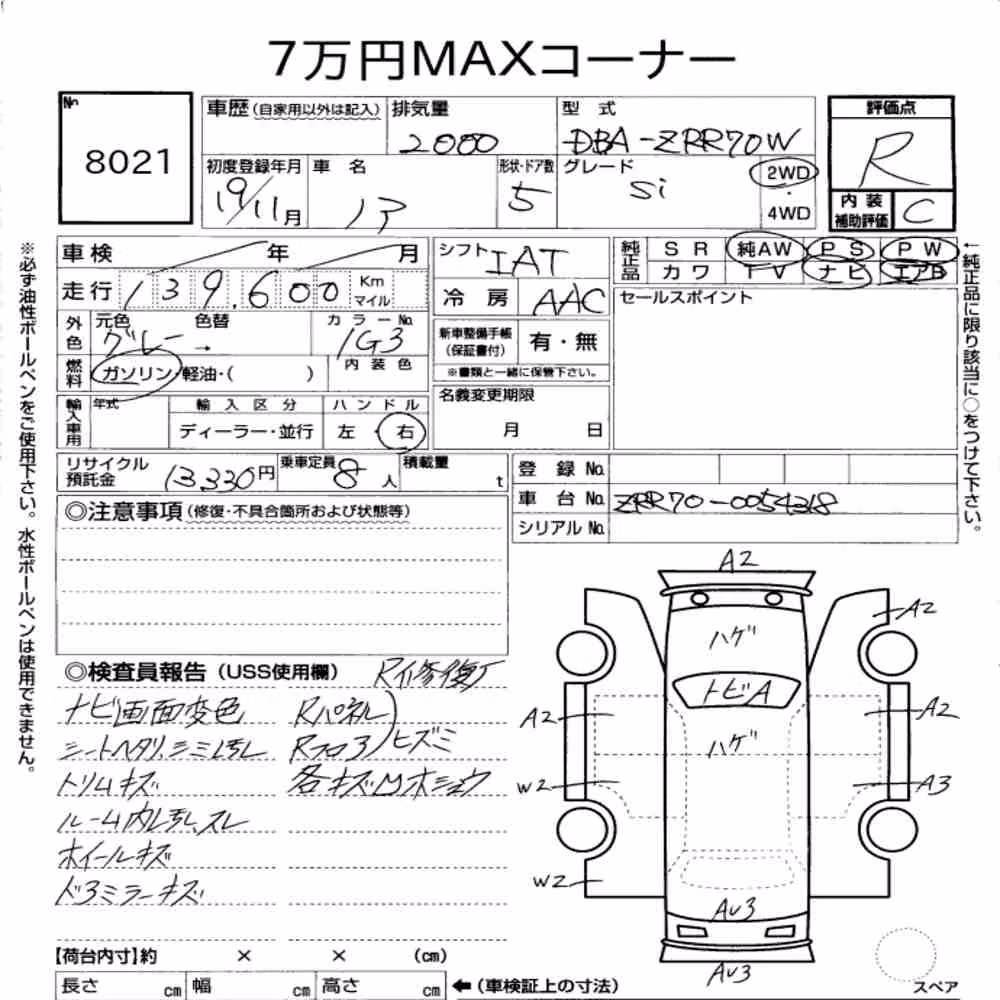 7万円MAXコーナー
No
8021
車歴 (自家用以外は記入) 排気量 型式
2000 DBA-ZRR70W
初度登録年月 車名 形状・ドア数 グレード
19/11月 5 Si
2WD
・
4WD
評価点
R
内装
補助評価
C
車検 年 月
走行 139,600 Km
マイル
外色 元色 色替 カラーNo.
グレー → 1G3
燃料 ガソリン・軽油・( ) 内装色
輸入車用 年式 輸入区分 ハンドル
ディーラー・並行 左・右
シフト IAT
冷房 AAC
新車整備手帳
(保証書付) 有・無
※書類と一緒に保管下さい。
名義変更期限
月 日
純正品 SR 純AW PS PW
カワ TV ナビ エアB
セールスポイント
リサイクル
預託金 13330円 乗車定員 8人 積載量 t
登録No.
車台No. ZRR70-0054318
シリアルNo.
※必ず油性ボールペンをご使用下さい。水性ボールペンは使用できません。
←純正品に限り該当に○をつけて下さい。
◎注意事項(修復・不具合箇所および状態等)
◎検査員報告(USS使用欄)
ナビ画面変色 Rパネル
シートヘタリ、シミ Rフロア ヒズミ
トリムキズ 各キズ凹
ルーム内 スレ
ホイールキズ
ドアミラーキズ
【荷台内寸】約 × × (cm)
長さ cm 幅 cm 高さ cm ←(車検証上の寸法)
A2
ハゲ A2
トビA
A2 A2
ハゲ
W2 A3
W2
AU3
AU3
スペア